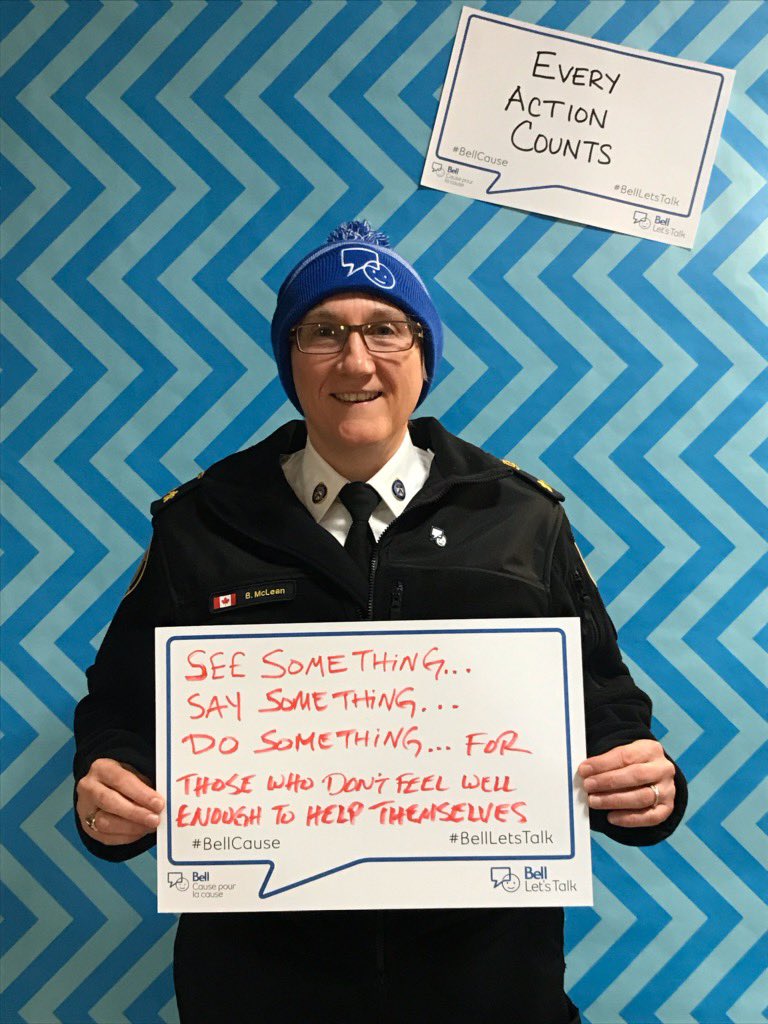 EVERY
ACTION
COUNTS
#BellCause
#BellLetsTalk
Bell
Cause pour
la cause
Bell
Let's Talk
B. McLean
SEE SOMETHING...
SAY SOMETHING...
DO SOMETHING... FOR
THOSE WHO DON'T FEEL WELL
ENOUGH TO HELP THEMSELVES
#BellCause
#BellLetsTalk
Bell
Cause pour
la cause
Bell
Let's Talk